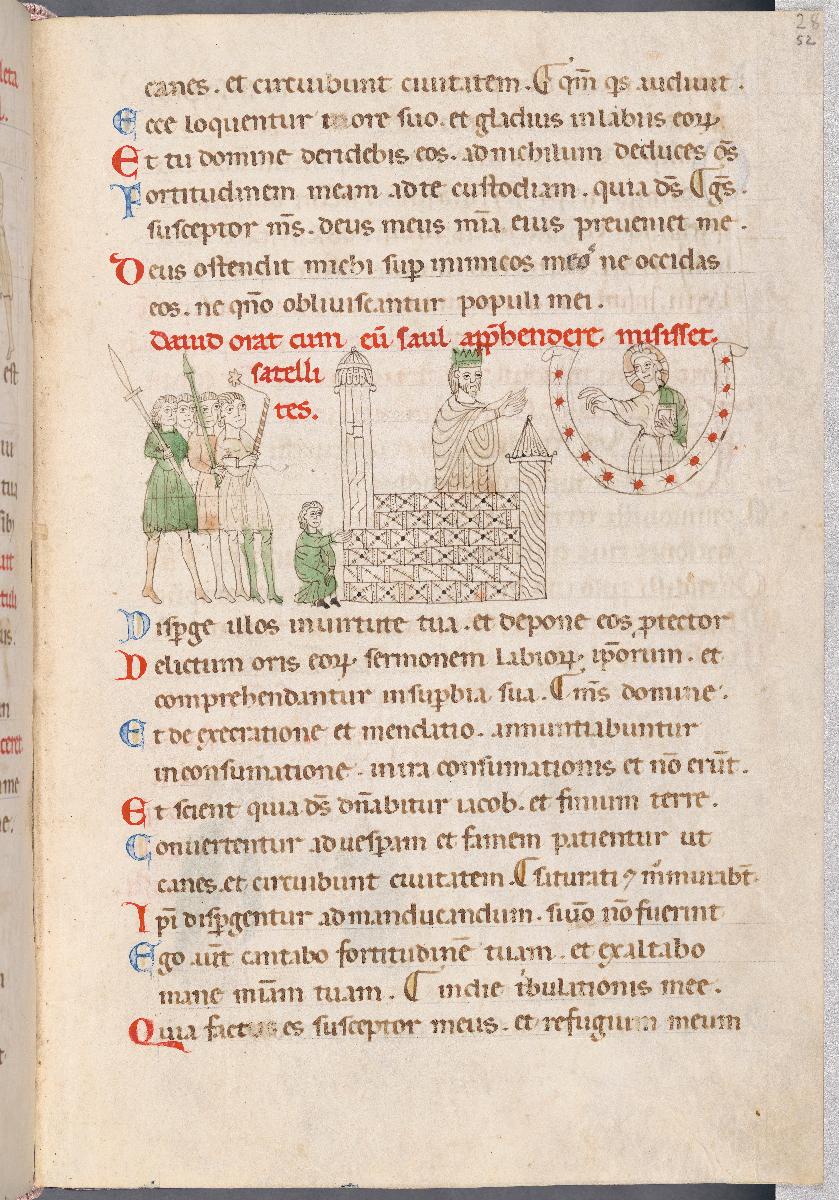 28
52
canes. et circuibunt ciuitatem. ⁋ qm̄ qs audiuit.
Ecce loquentur in ore suo. et gladius inlabiis eoꝝ
Et tu domine deridebis eos. adnichilum deduces oṁs
Fortitudinem meam adte custodiam. quia ds̄ ⁋ gs̄.
susceptor ms̄. deus meus mīa eius preueniet me.
Deus ostendit michi suꝑ inimicos meos ne occidas
eos. ne qn̄o obliuiscantur populi mei.
dauid orat cum eū saul app̄hendere misisset.
satelli
tes.
Disꝑge illos inuirtute tua. et depone eos ꝓtector
Delictum oris eoꝝ. sermonem labioꝝ. ip̄orum. et
comprehendantur insuꝑbia sua. ⁋ ms̄ domine.
Et de execratione et mendatio. annuntiabuntur
inconsumatione. inira consumationis et nō erūt.
Et scient quia ds̄ dn̄abitur iacob. et finium terre.
Conuertentur aduesꝑam et famem patientur ut
canes. et circuibunt ciuitatem. ⁋ saturati ⁊ murmurabt̄.
Ipi disꝑgentur admanducandum. siuō nō fuerint
Ego aut̄ cantabo fortitudinē tuam. et exaltabo
mane mīam tuam. ⁋ indie tbulationis mee.
Quia factus es susceptor meus. et refugium meum